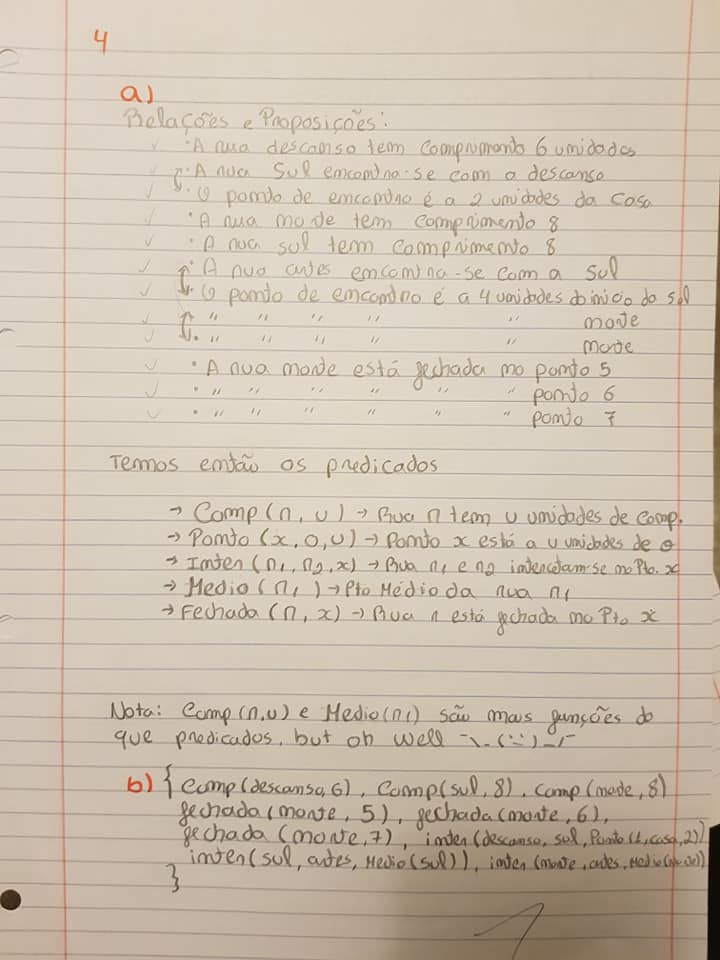 4
a)
Relações e Proposições:
· A rua descanso tem comprimento 6 unidades
· A rua Sul encontra-se com a descanso
· O ponto de encontro é a 2 unidades da Casa
· A rua norte tem comprimento 8
· A rua sul tem comprimento 8
· A rua artes encontra-se com a sul
· O ponto de encontro é a 4 unidades do inicio do sul
· " " " " " norte
· " " " " " norte
· A rua norte está fechada no ponto 5
· " " " " " " ponto 6
· " " " " " " ponto 7
Temos então os predicados
→ Comp (r, u) → Rua r tem u unidades de comp.
→ Ponto (x, o, u) → Ponto x está a u unidades de o
→ Inter (r1, r2, x) → Rua r1 e r2 intercetam-se no Pto. x
→ Medio (r1 ) → Pto Médio da rua r1
→ Fechada (r, x) → Rua r está fechada no Pto x
Nota: Comp (r,u) e Medio (r1) são mais funções do
que predicados, but oh well ¯\_(··)_/¯
b) { Comp (descanso, 6), Comp (sul, 8), comp (norte, 8)
fechada (norte, 5), fechada (norte, 6),
fechada (norte, 7), inter (descanso, sul, Ponto (1, casa, 2))
inter (sul, artes, Medio (sul)), inter (norte, artes, Medio
}